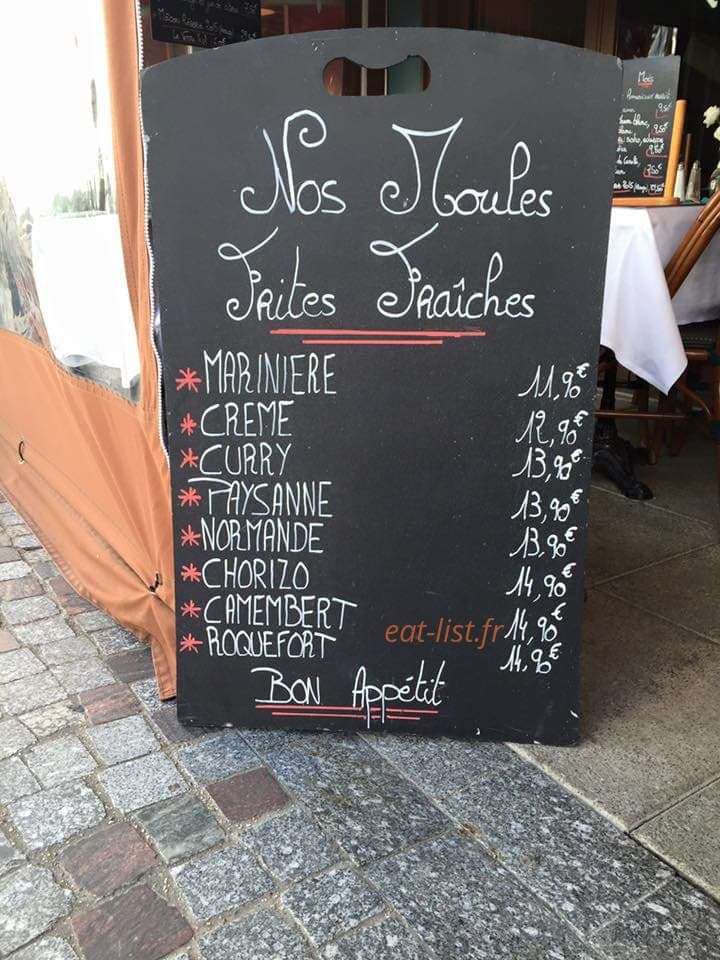 Nos Moules
Frites Fraîches
*MARINIERE 11,90€
*CREME 12,90€
*CURRY 13,90€
*PAYSANNE 13,90€
*NORMANDE 13.90€
*CHORIZO 14,90€
*CAMEMBERT 14,90€
*ROQUEFORT 14.90€
eat-list.fr
Bon Appétit
Mois
9,50€
9,50€
9,50€
7,50€